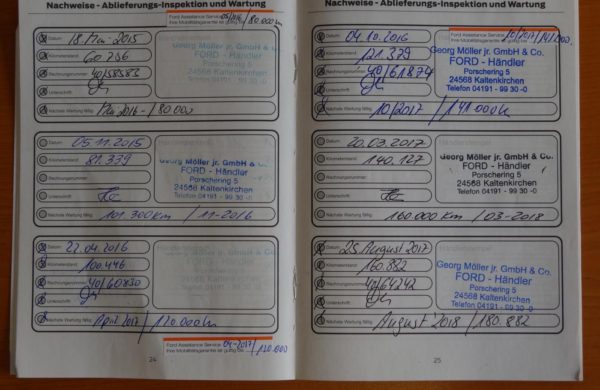 Nachweise - Ablieferungs-Inspektion und Wartung
Ford Assistance Service
Ihre Mobilitätsgarantie ist gültig bis
/80.000
Datum 18. Mai 2015
Kilometerstand 60.756
Rechnungsnummer 40/58583
Unterschrift
Nächste Wartung fällig Mai 2016 / 80.000
Georg Möller jr. GmbH & Co.
FORD - Händler
Porschering 5
24568 Kaltenkirchen
Datum 05.11.2015
Kilometerstand 81.339
Rechnungsnummer
Unterschrift
Nächste Wartung fällig 101 300 km / 11-2016
Georg Möller jr. GmbH & Co.
FORD - Händler
Porschering 5
24568 Kaltenkirchen
Telefon 04191 - 99 30 -0
Datum 22.04.2016
Kilometerstand 100.446
Rechnungsnummer
Unterschrift
Nächste Wartung fällig April 2017 / 120.000
Ford Assistance Service
Ihre Mobilitätsgarantie ist gültig bis
04-2017/120.000
24
Nachweise - Ablieferungs-Inspektion und Wartung
Ford Assistance Service
Ihre Mobilitätsgarantie ist gültig bis
10/2017/141.000
Datum 04.10.2016
Kilometerstand 121.379
Rechnungsnummer 40/61874
Unterschrift
Nächste Wartung fällig 10/2017 / 141.000
Georg Möller jr. GmbH & Co.
FORD - Händler
Porschering 5
24568 Kaltenkirchen
Telefon 04191 - 99 30 -0
Datum 20.03.2017
Kilometerstand 140.127
Rechnungsnummer
Unterschrift
Nächste Wartung fällig 160.000 km / 03-2018
Georg Möller jr. GmbH & Co.
FORD - Händler
Porschering 5
24568 Kaltenkirchen
Telefon 04191 - 99 30 -0
Datum 25. August 2017
Kilometerstand 160.882
Rechnungsnummer 40/64242
Unterschrift
Nächste Wartung fällig August 2018 / 180.882
Georg Möller jr. GmbH & Co.
FORD - Händler
Porschering 5
24568 Kaltenkirchen
Telefon 04191 - 99 30 -0
25